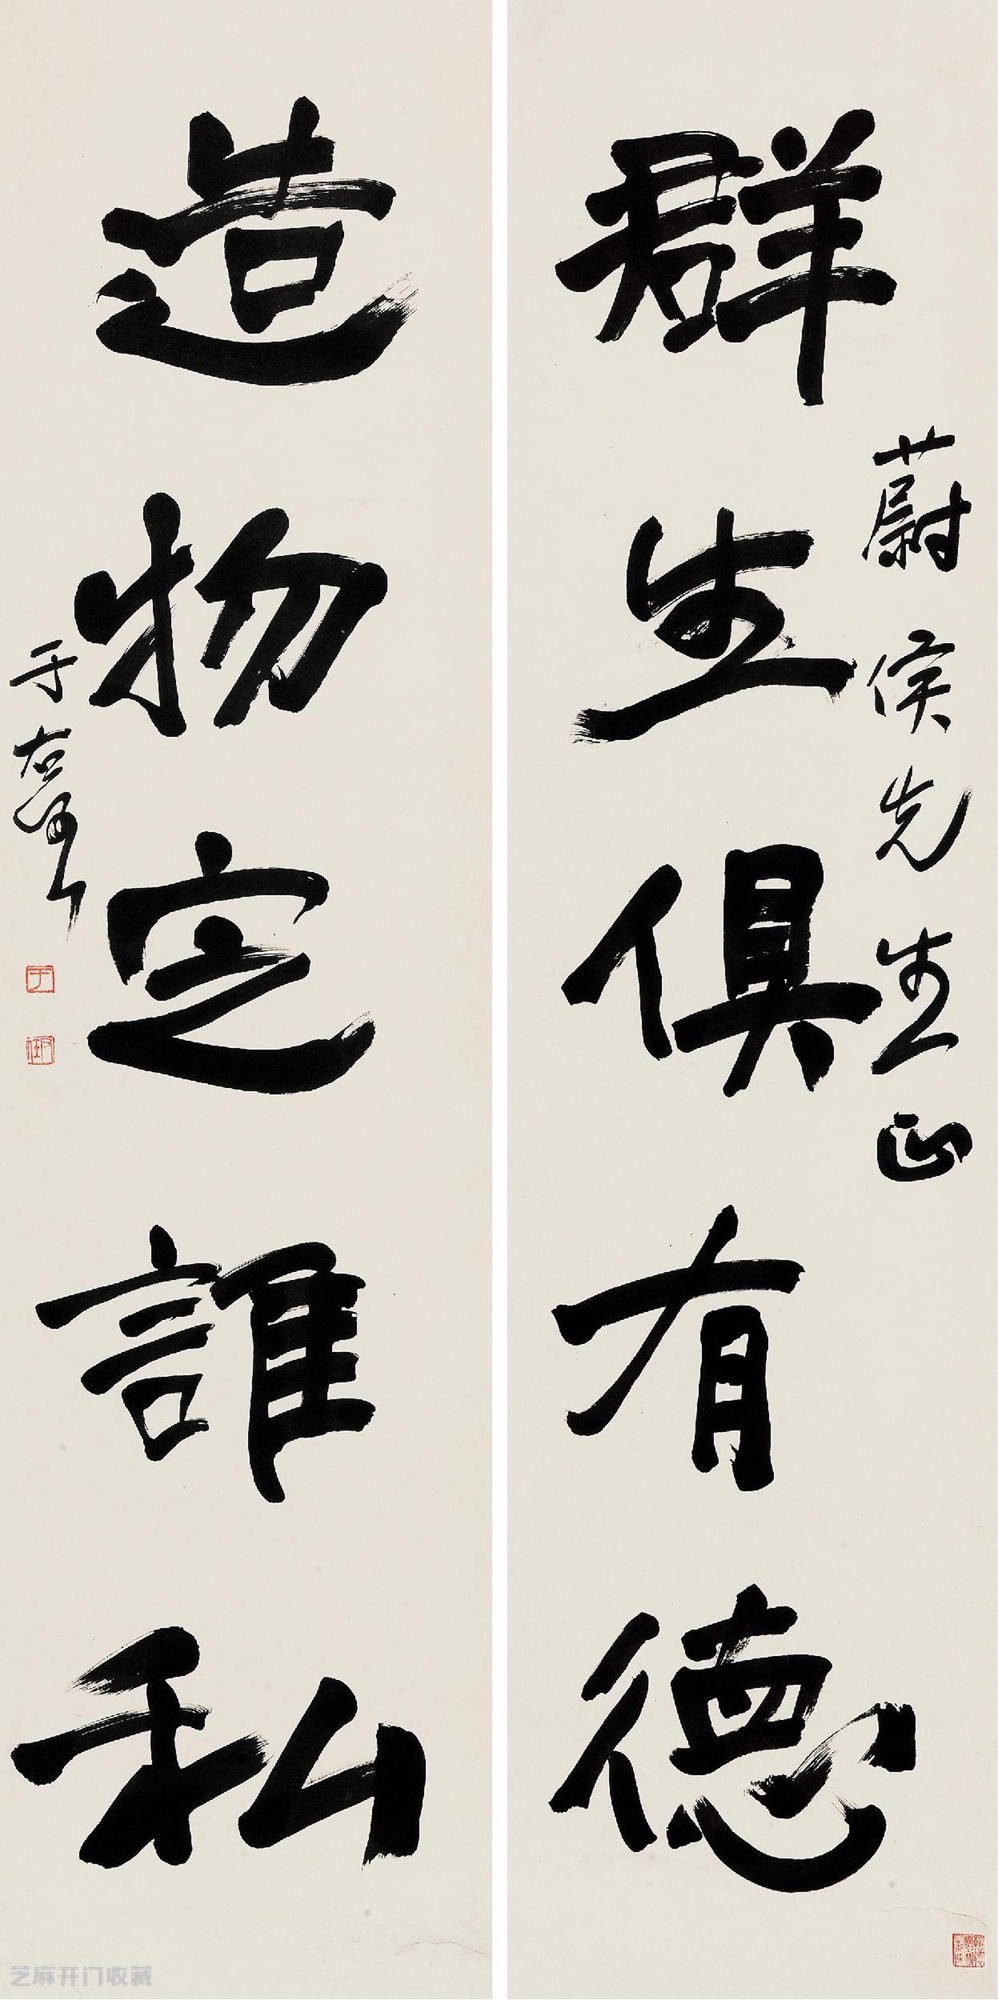 群生俱有德
蔚侯先生正
造物定誰私
于右任
芝麻开门收藏